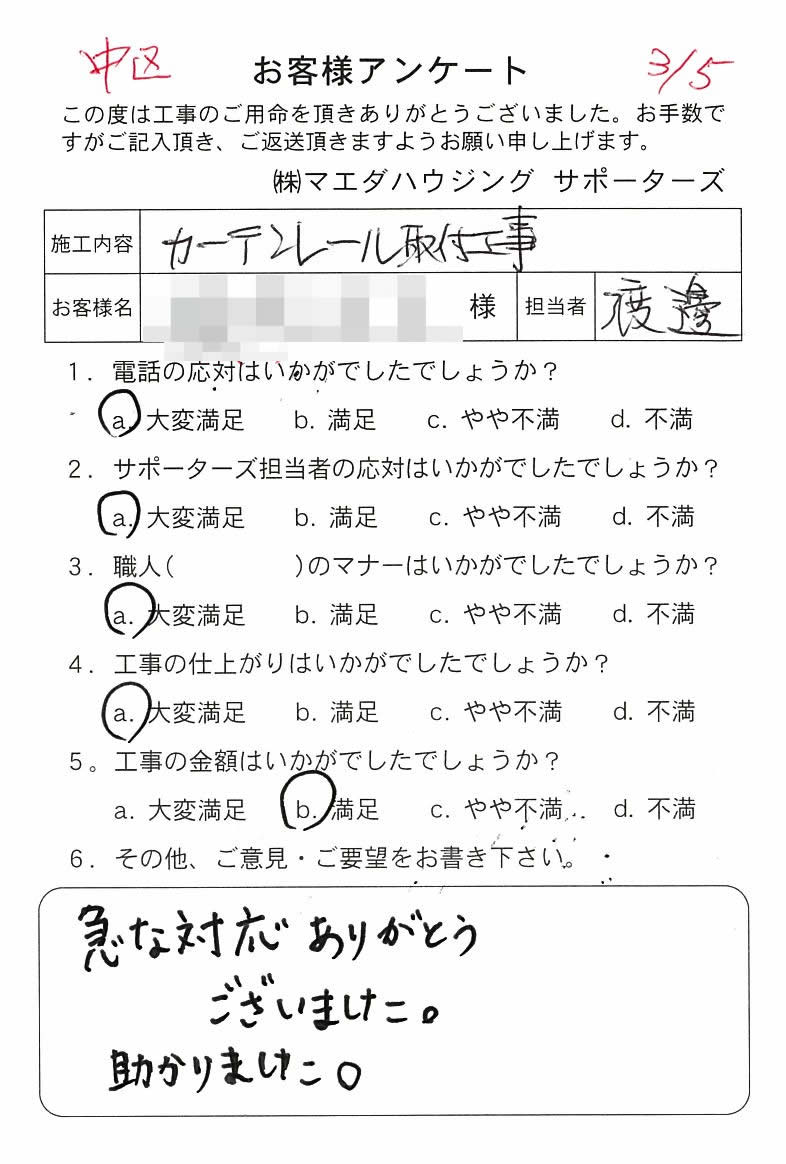 中区 お客様アンケート 3/5
この度は工事のご用命を頂きありがとうございました。お手数で
すがご記入頂き、ご返送頂きますようお願い申し上げます。
㈱マエダハウジング サポーターズ
施工内容 カーテンレール取付工事
お客様名 様 担当者 渡邊
1. 電話の応対はいかがでしたでしょうか？
a. 大変満足 b. 満足 c. やや不満 d. 不満
2. サポーターズ担当者の応対はいかがでしたでしょうか？
a. 大変満足 b. 満足 c. やや不満 d. 不満
3. 職人( )のマナーはいかがでしたでしょうか？
a. 大変満足 b. 満足 c. やや不満 d. 不満
4. 工事の仕上がりはいかがでしたでしょうか？
a. 大変満足 b. 満足 c. やや不満 d. 不満
5。工事の金額はいかがでしたでしょうか？
a. 大変満足 b. 満足 c. やや不満 d. 不満
6. その他、ご意見・ご要望をお書き下さい。
急な対応ありがとう
ございました。
助かりました。